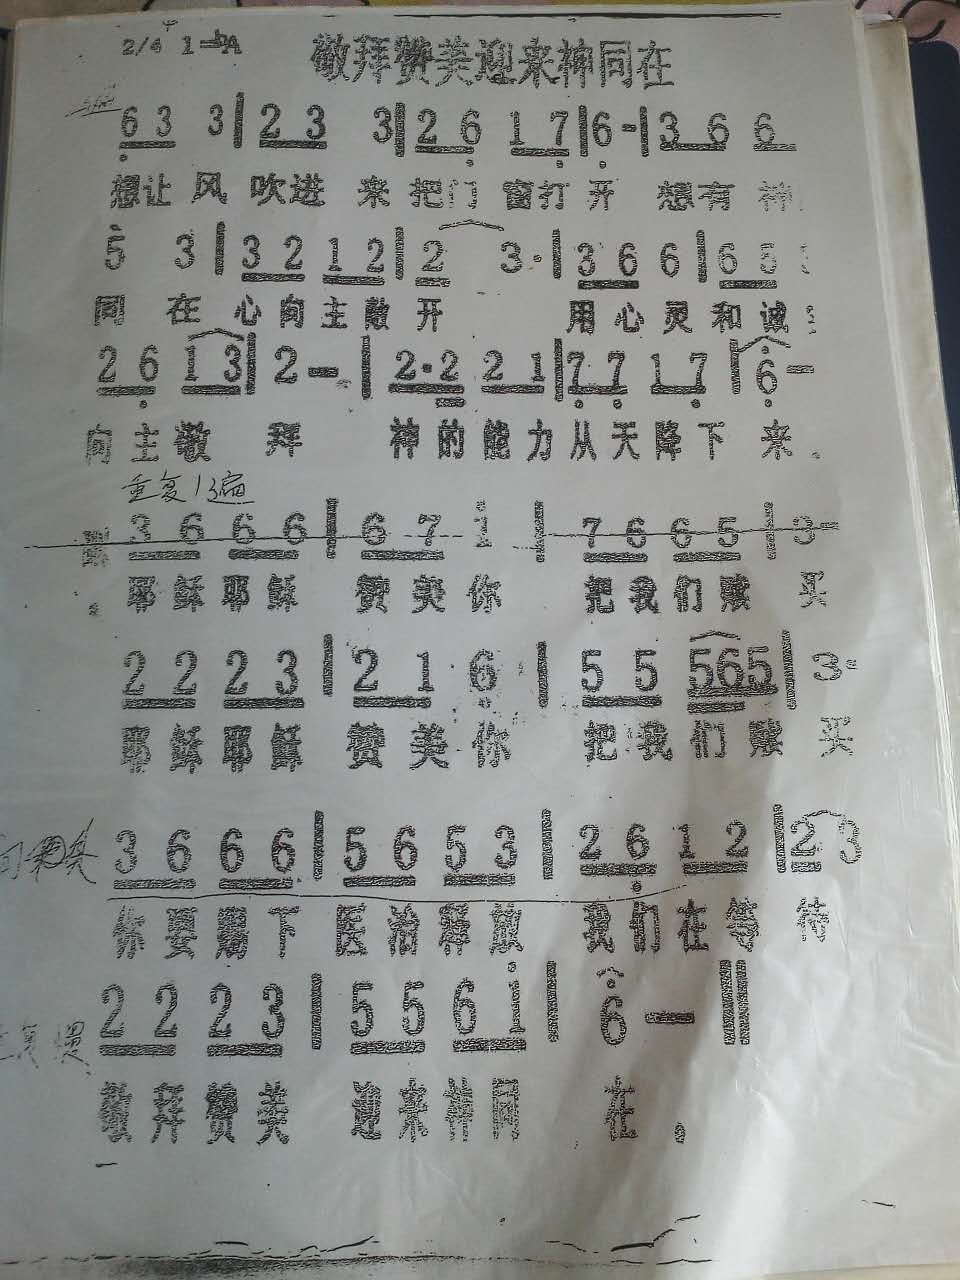 2/4 1=A 敬拜赞美迎来神同在
6 3 3 | 2 3 3 | 2 6 1 7 | 6 - | 3 6 6
想让 风 吹进 来 把们 窗打 开 想有 神
5 3 | 3 2 1 2 | 2 3· | 3 6 6 | 6 5
同 在 心向主敞 开 用心灵和诚
2 6 1 3 | 2 - | 2·2 2 1 | 7 7 1 7 | 6 -
向主敬 拜 神的能力从天降下 来
重复1遍
3 6 6 6 | 6 7 i | 7 6 6 5 | 3-
耶稣耶稣 赞美你 把我们赎 买
2 2 2 3 | 2 1 6 | 5 5 5 6 5 | 3-
耶稣耶稣 赞美你 把我们赎 买
3 6 6 6 | 5 6 5 3 | 2 6 1 2 | 2 3
你要赐下 医治释放 我们在等 待
2 2 2 3 | 5 5 6 i | 6 -
敬拜赞美 迎来神同 在